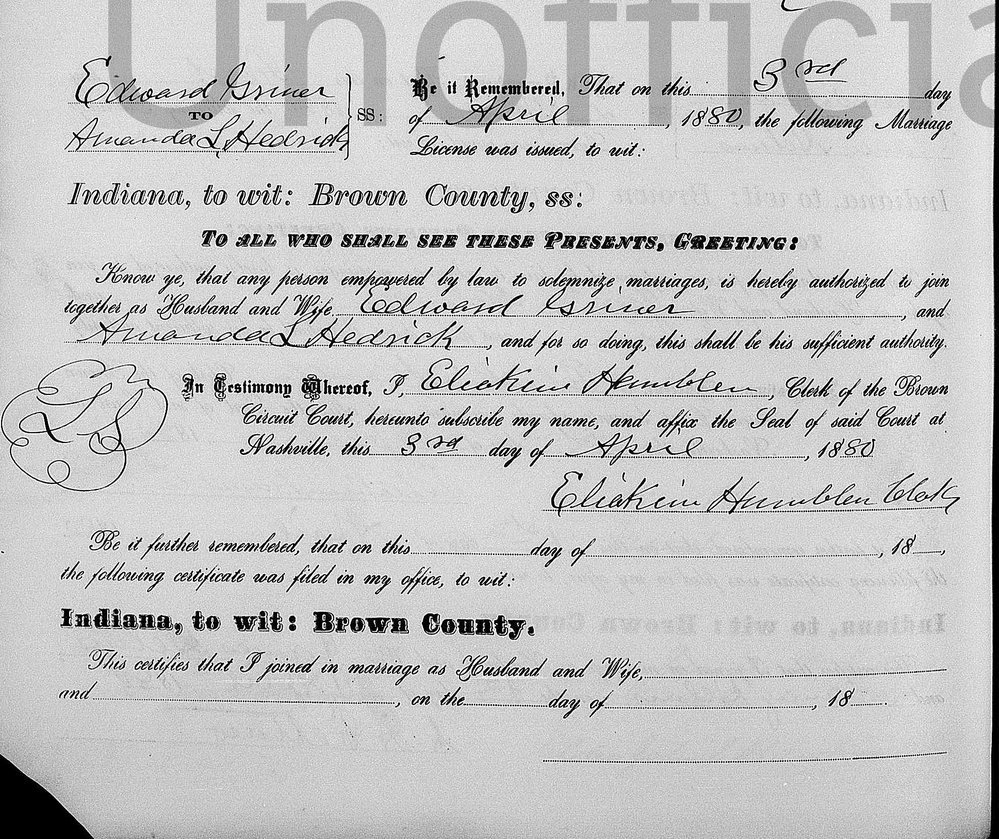 Unofficia
Edward Isiner
TO
Amanda L Hedrick
SS:
Be it Remembered, That on this 3rd day
of April, 1880, the following Marriage
License was issued, to wit:
Indiana, to wit: Brown County, ss:
TO ALL WHO SHALL SEE THESE PRESENTS, GREETING:
Know ye, that any person empowered by law to solemnize marriages, is hereby authorized to join
together as Husband and Wife, Edward Isiner, and
Amanda L Hedrick, and for so doing, this shall be his sufficient authority.
LS
In Testimony Whereof, I, Eliakim Hamblen, Clerk of the Brown
Circuit Court, hereunto subscribe my name, and affix the Seal of said Court at
Nashville, this 3rd day of April, 1880
Eliakim Hamblen Clerk
Be it further remembered, that on this day of , 18 ,
the following certificate was filed in my office, to wit:
Indiana, to wit: Brown County.
This certifies that I joined in marriage as Husband and Wife,
and , on the day of , 18